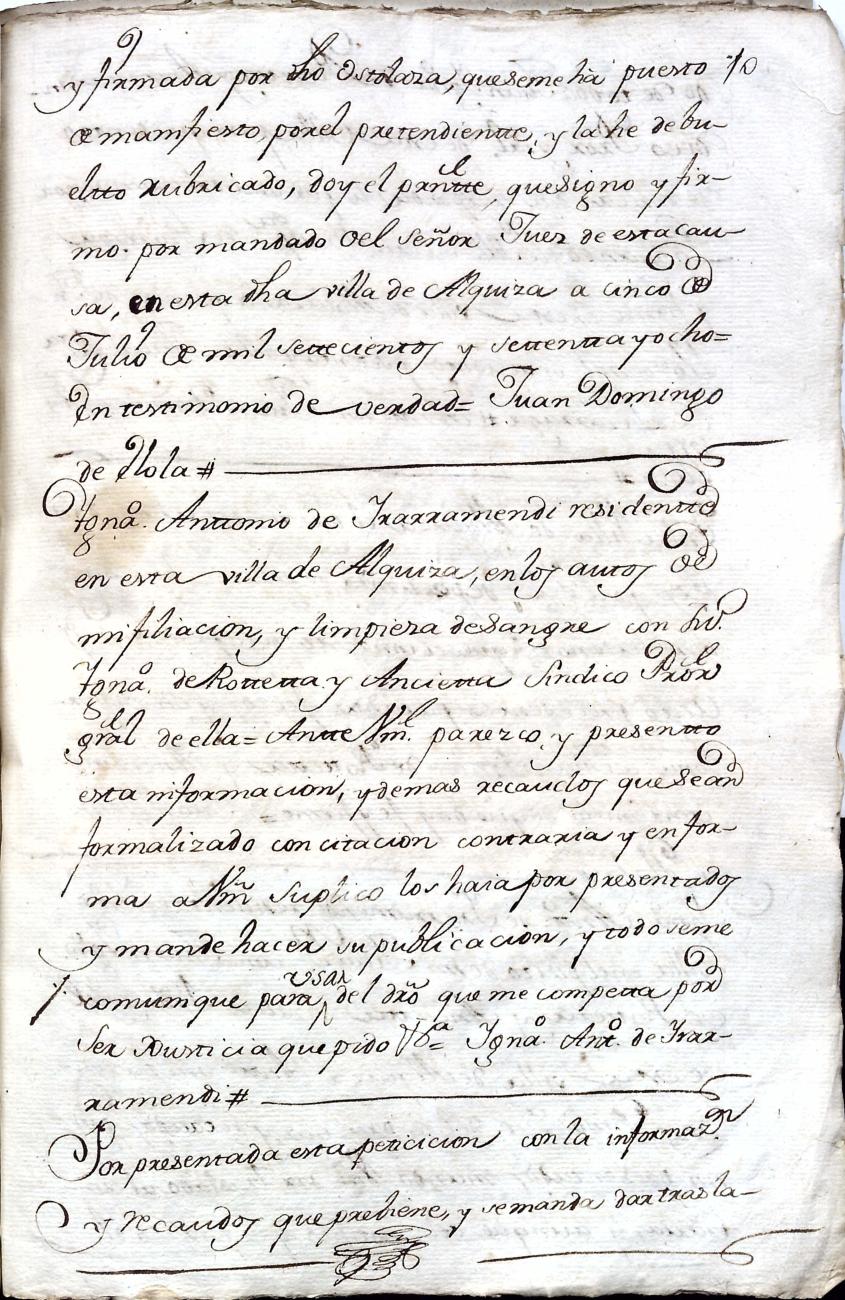 y firmada por dho Ostolaza, que se me hà puesto 10
de manifiesto, por el pretendientte, y la he debu-
eltto rubricado, doy el presntte, que signo y fir-
mo. por mandado del Señor Juez de esta cau-
sa, en esta dha villa de Alquiza a cinco de
Julio de mil settecientos y settentta y ocho=
En testimonio de verdad= Juan Domingo
de Llola #
Ignao. Anttonio de Irarramendi residentte
en esta villa de Alquiza, en los autos de
mi filiacion, y limpieza de Sangre con
Ignao. de Rottetta y Anciettta Sindico Pror
gral de ella= Antte Vm. parezco, y presentto
esta informacion, y demas recaudos que sean
formalizado con citacion contraria y en for-
ma a Vm suplico los haia por presentados
y mande hacer su publicacion, y todo se me
usar
comunique para del dro que me competta por
ser Justicia que pido = Ignao. Anto. de Irar-
ramendi #
Por presentada esta peticicion con la informazn.
y recaudos que prebiene, y se manda dar tras la-